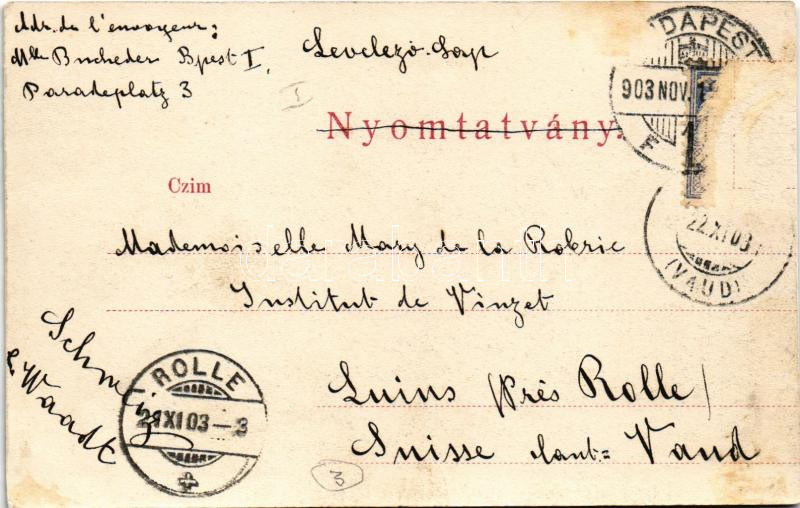 Adr. de l'envoyeur:
Mlle Bucheder Bpest I,
Paradeplatz 3
Levelező-Lap
I
Nyomtatvány.
BUDAPEST
903 NOV.
Czim
22.XI.03
(VAUD)
Mademoiselle Mary de la Robrie
Institut de Vinzet
Schweiz
Waadt
ROLLE
21 XI 03 - 3
Luins (Près Rolle)
Suisse Cant= Vaud
3